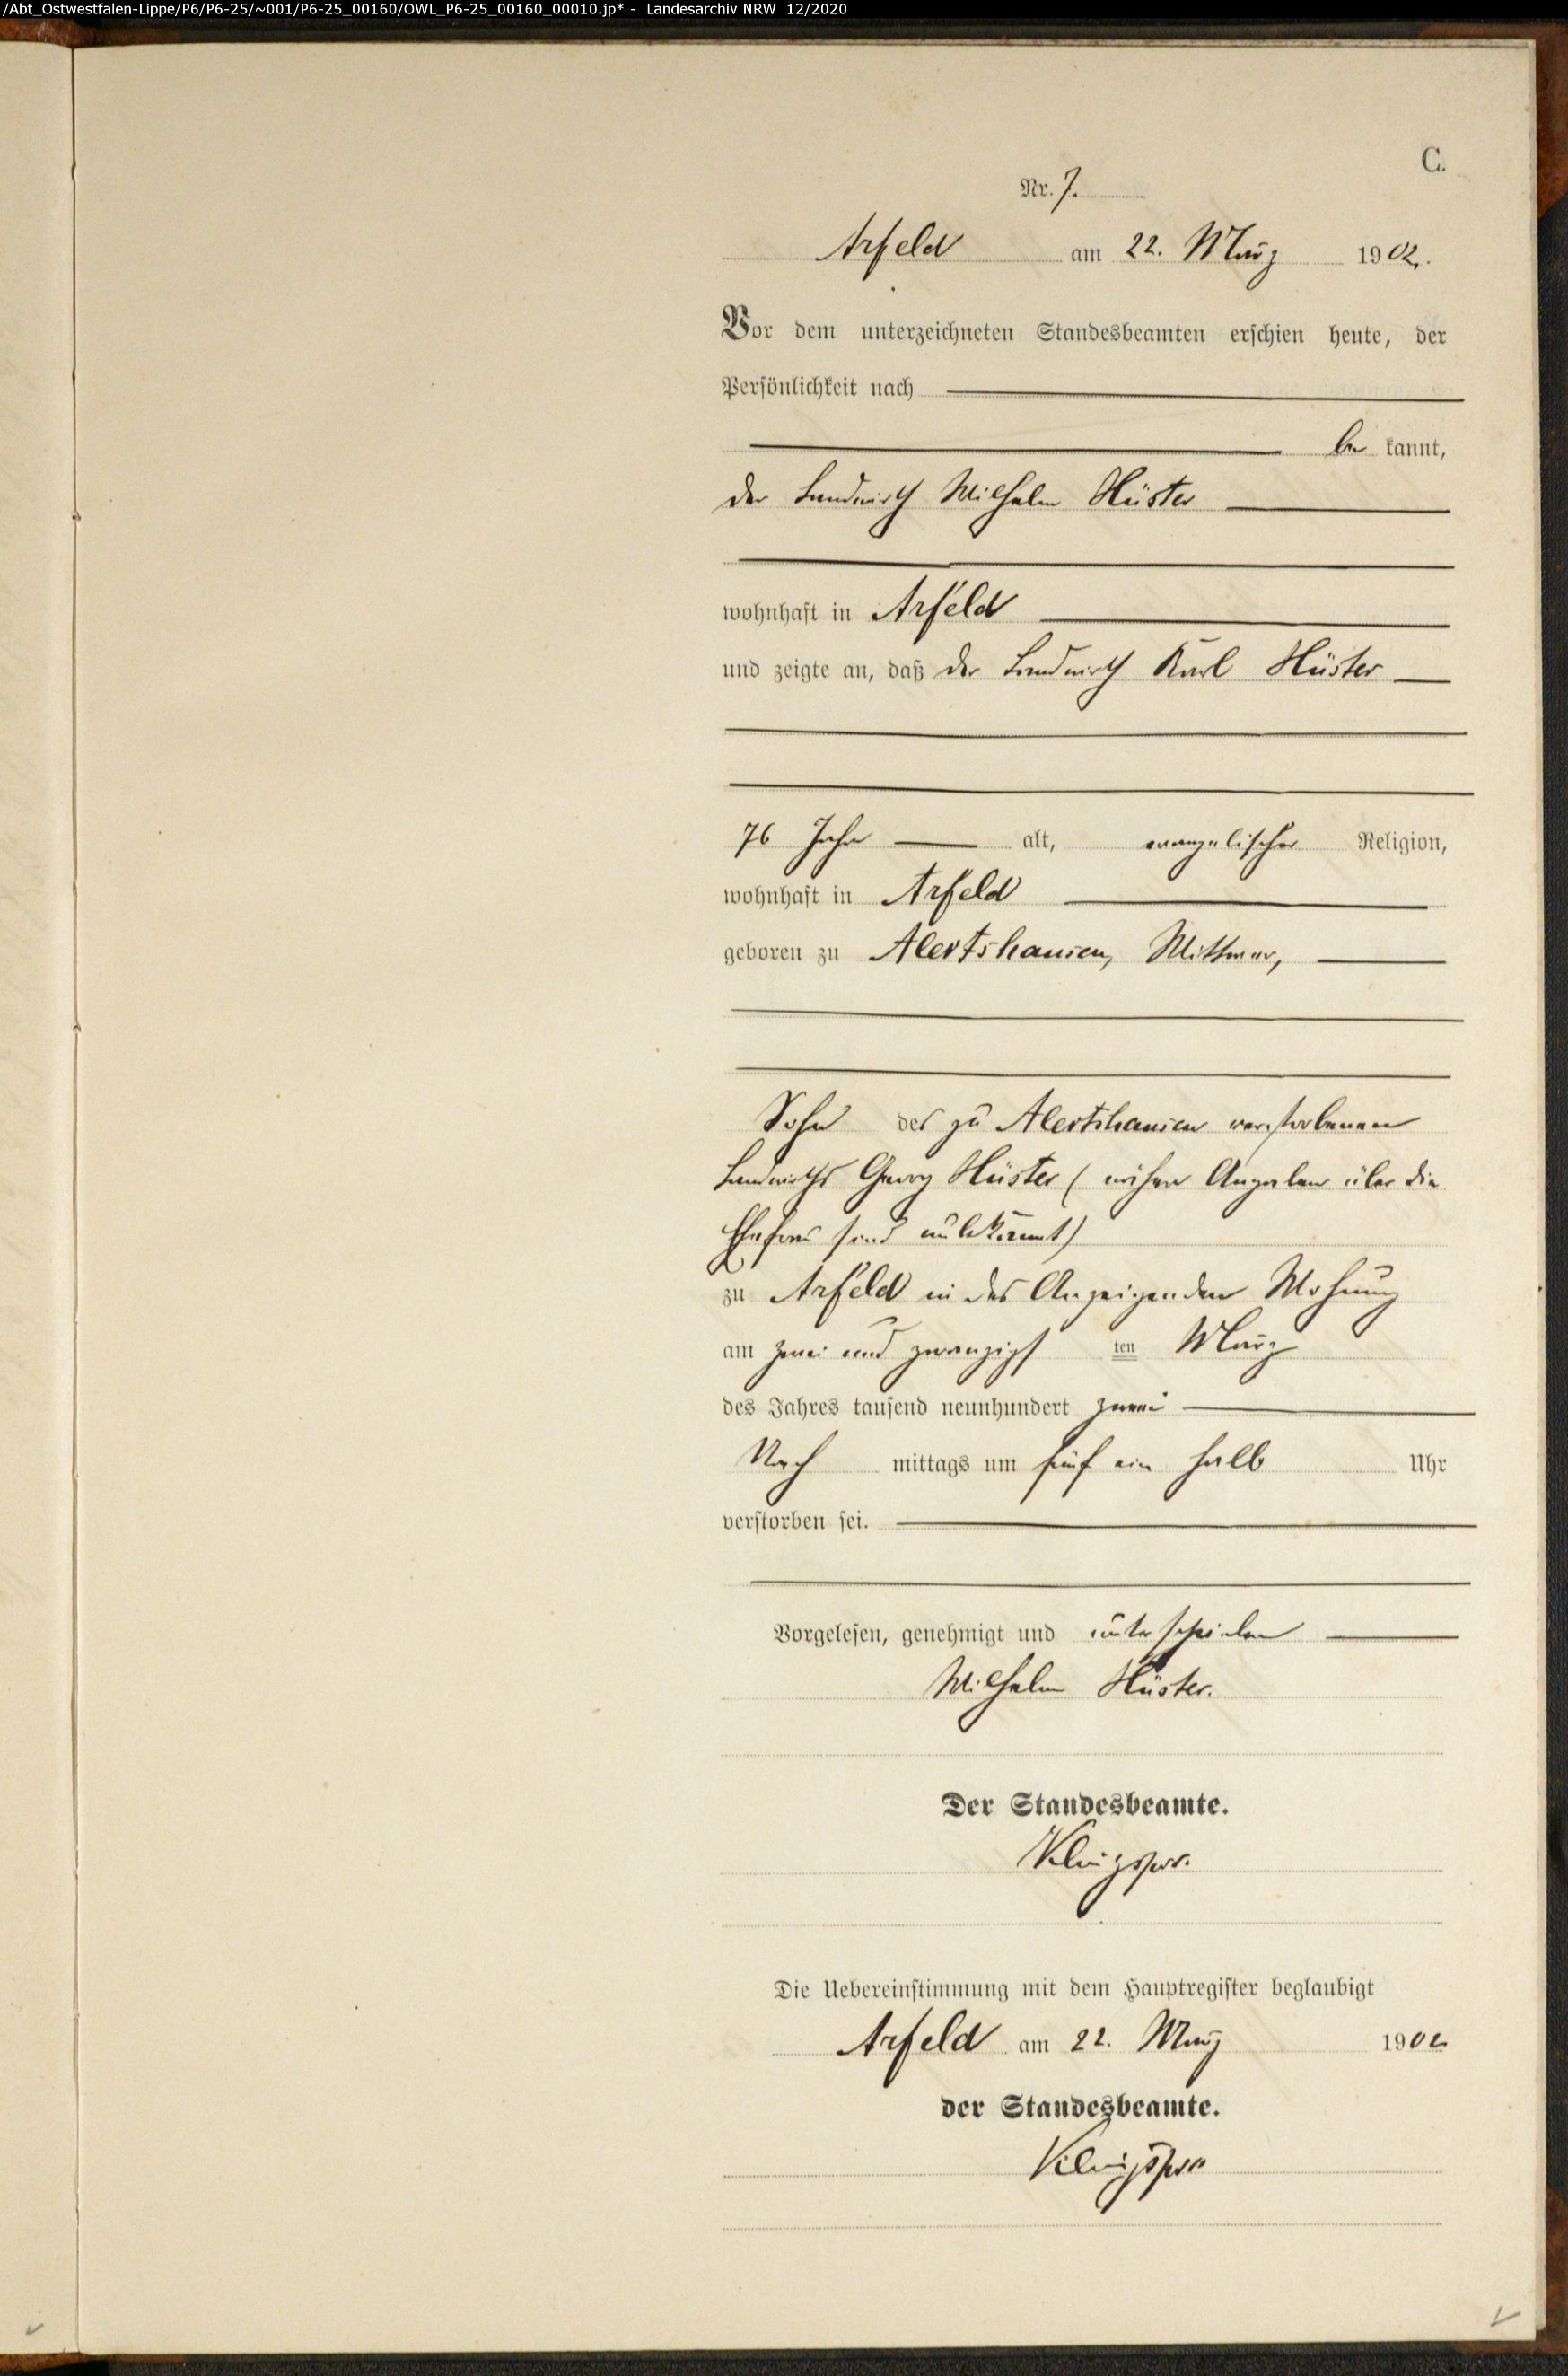 /Abt_Ostwestfalen-Lippe/P6/P6-25/~001/P6-25_00160/OWL_P6-25_00160_00010.jp* - Landesarchiv NRW 12/2020
C.
Nr. 7.
Arfeld am 22. März 1902.
Vor dem unterzeichneten Standesbeamten erschien heute, der
Persönlichkeit nach
be kannt,
der Landwirth Wilhelm Hüster
wohnhaft in Arfeld
und zeigte an, daß der Landwirth Karl Hüster
76 Jahre alt, evangelischer Religion,
wohnhaft in Arfeld
geboren zu Alertshausen, Wittwer,
Sohn des zu Alertshausen verstorbenen
Landwirths Georg Hüster (nähere Angaben über die
Ehefrau sind unbekannt)
zu Arfeld in des Anzeigenden Wohnung
am zwei und zwanzigs ten März
des Jahres tausend neunhundert zwei
Nach mittags um fünf ein halb Uhr
verstorben sei.
Vorgelesen, genehmigt und unterschrieben
Wilhelm Hüster.
Der Standesbeamte.
Klingspor.
Die Uebereinstimmung mit dem Hauptregister beglaubigt
Arfeld am 22. März 1902
der Standesbeamte.
Klingspor